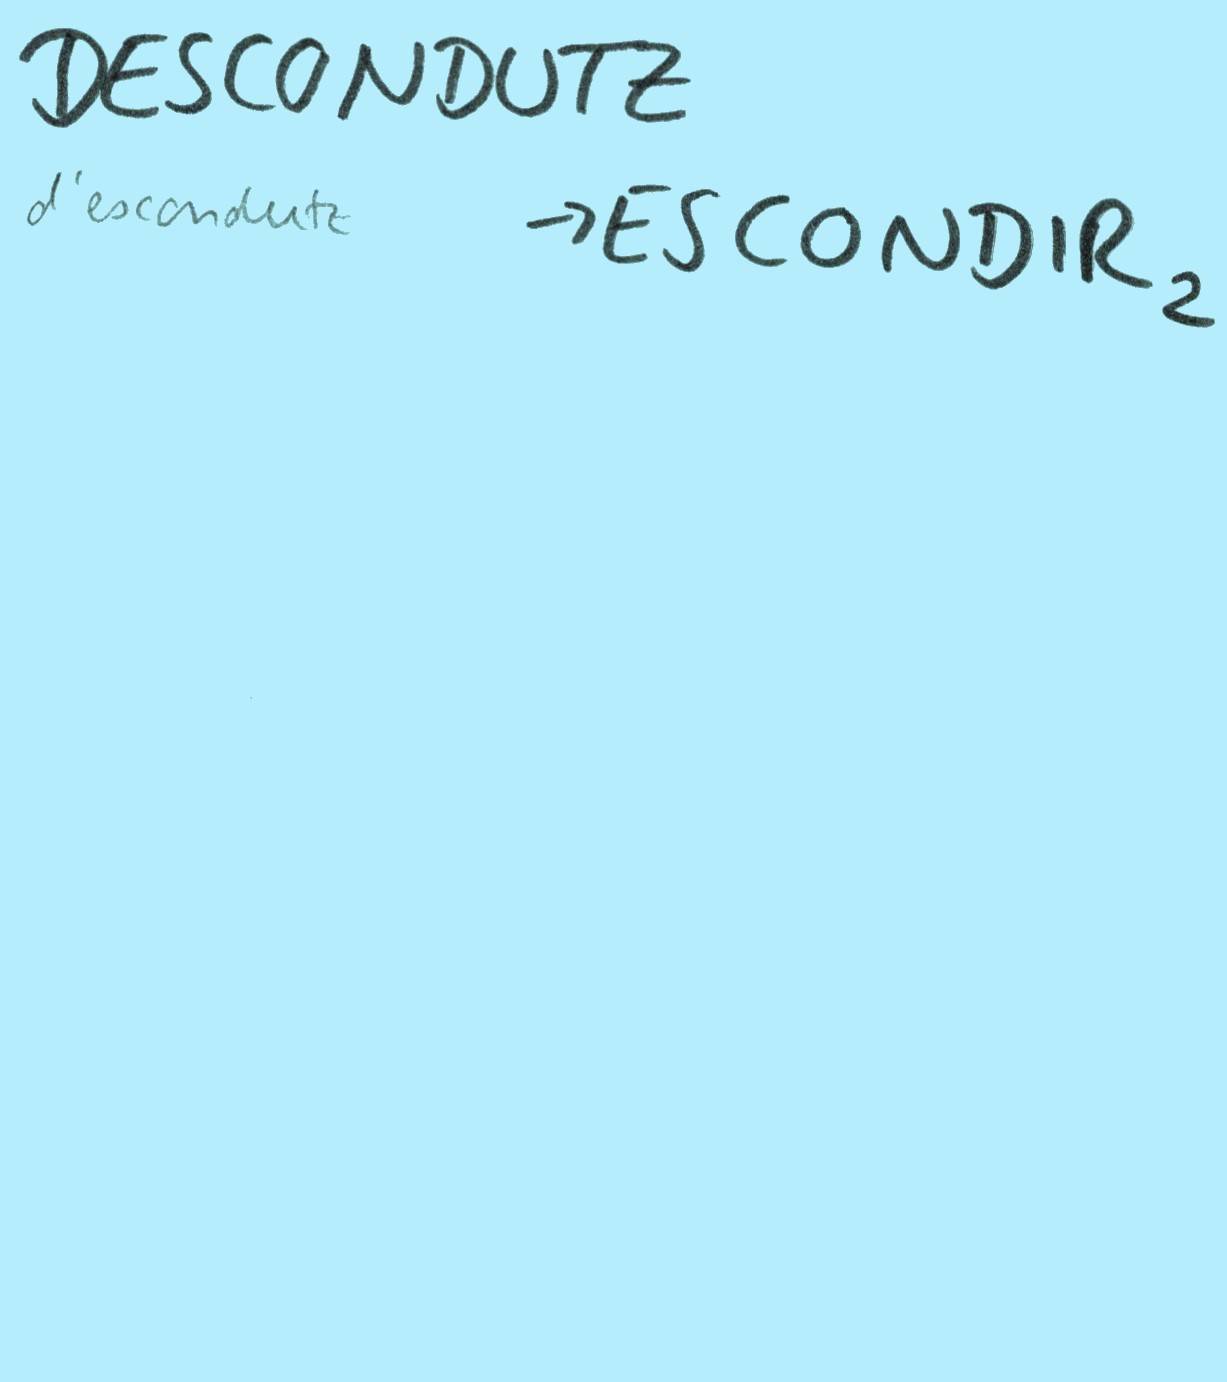 DESCONDUTZ
d'escondutz →ESCONDIR₂